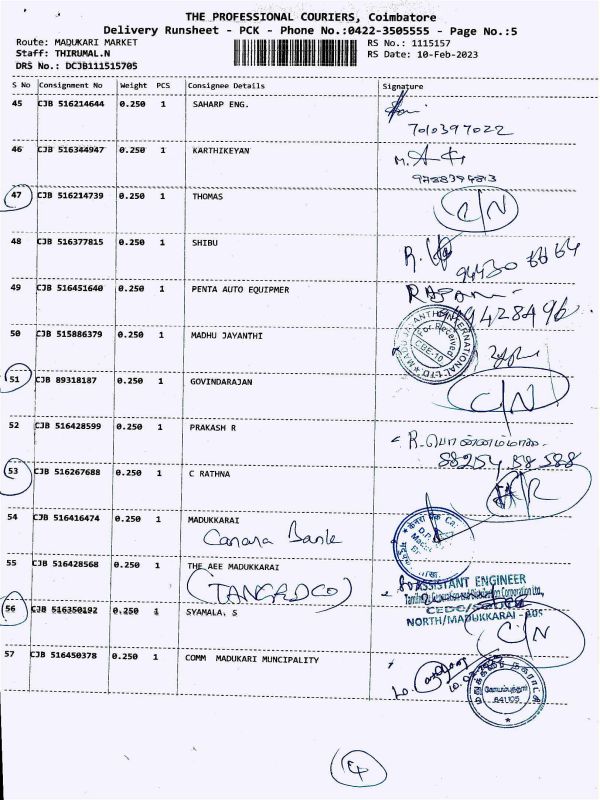 THE PROFESSIONAL COURIERS, Coimbatore
Delivery Runsheet - PCK - Phone No.:0422-3505555 - Page No.:5
Route: MADUKARI MARKET RS No.: 1115157
Staff: THIRUMAL.N RS Date: 10-Feb-2023
DRS No.: DCJB111515705
S No Consignment No Weight PCS Consignee Details Signature
45 CJB 516214644 0.250 1 SAHARP ENG.
7010397022
46 CJB 516344947 0.250 1 KARTHIKEYAN
47 CJB 516214739 0.250 1 THOMAS
C/N
48 CJB 516377815 0.250 1 SHIBU
49 CJB 516451640 0.250 1 PENTA AUTO EQUIPMER
50 CJB 515886379 0.250 1 MADHU JAYANTHI
MADHU JAYANTHI INTERNATIONAL LTD
For Received
CBE-10
51 CJB 89318187 0.250 1 GOVINDARAJAN
C/N
52 CJB 516428599 0.250 1 PRAKASH R
88254 58 588
53 CJB 516267688 0.250 1 C RATHNA
54 CJB 516416474 0.250 1 MADUKKARAI
Canara Bank
55 CJB 516428568 0.250 1 THE AEE MADUKKARAI
(TANGEDCO)
ASSISTANT ENGINEER
Tamilnadu Generation and Distribution Corporation Ltd.,
CEDC/SOUTH
NORTH/MADUKKARAI
56 CJB 516350192 0.250 1 SYAMALA. S
C/N
57 CJB 516450378 0.250 1 COMM MADUKARI MUNCIPALITY
கோயம்புத்தூர்
641105